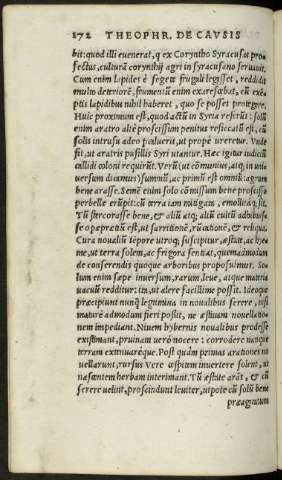 172 THEOPHR. DE CAVSIS
bit: quod illi euenerat, q ex Coryntho Syracusas pro
fectus, culturã corynthij agri in syracusano seruauit.
Cum enim lapides è segete frugali legisset, reddidit
multo deteriorẽ, frumentũ enim exarescebat, cũ exẽ
ptis lapidibus nihil haberet, quo se posset protegere.
Huic proximum est, quod actũ in Syria referũt: solũ
enim aratro altè proscissum penitus resiccatũ est, cũ
solis intrusu adeo patuerit, ut propè ureretur. Vnde
fit, ut aratris pusillis Syri utantur. Hæc igitur indicãt
callidi coloni requirũt. Verũ (ut cõmunius, atq; in uni
uersum dicamus) summũ, ac primũ est omniũ: agrum
bene arasse. Semẽ enim solo cõmissum bene proscisso
perbelle erũpit: cũ terra iam mitigata, emollitaq; sit.
Tũ stercorasse bene, & aliũ atq; aliũ cultũ adhibuis
se operæpretiũ est, ut sarritionẽ, rũcationẽ, & reliqua.
Cura noualiũ tẽpore utroq; suscipitur, æstate, ac hye
me, ut terra solem, ac frigora sentiat, quemadmodum
de conserendis quoque arboribus proposuimus. So
lum enim sæpe inuersum, rarum, leue, atque materia
uacuũ redditur: ita, ut alere facillime possit. Ideoque
præcipiunt nunq̃ legumina in noualibus serere, nisi
mature admodum fieri possit, ne æstiuam nouellatio
nem impediant. Niuem hybernis noualibus prodesse
existimant, pruinam uerò nocere: corrodere nanque
terram extenuareque. Post quàm primas arationes no
uellarunt, rursus Vere cespitem inuertere solent, ut
nascentem herbam interimant. Tũ æstate arãt, & cũ
serere uelint, proscindunt leuiter, utpote cũ solũ bene
præagnitum